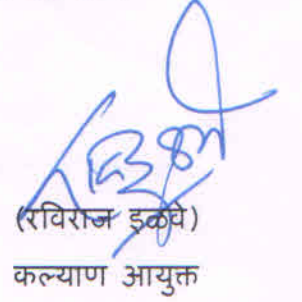 (रविराज इळवे)
कल्याण आयुक्त